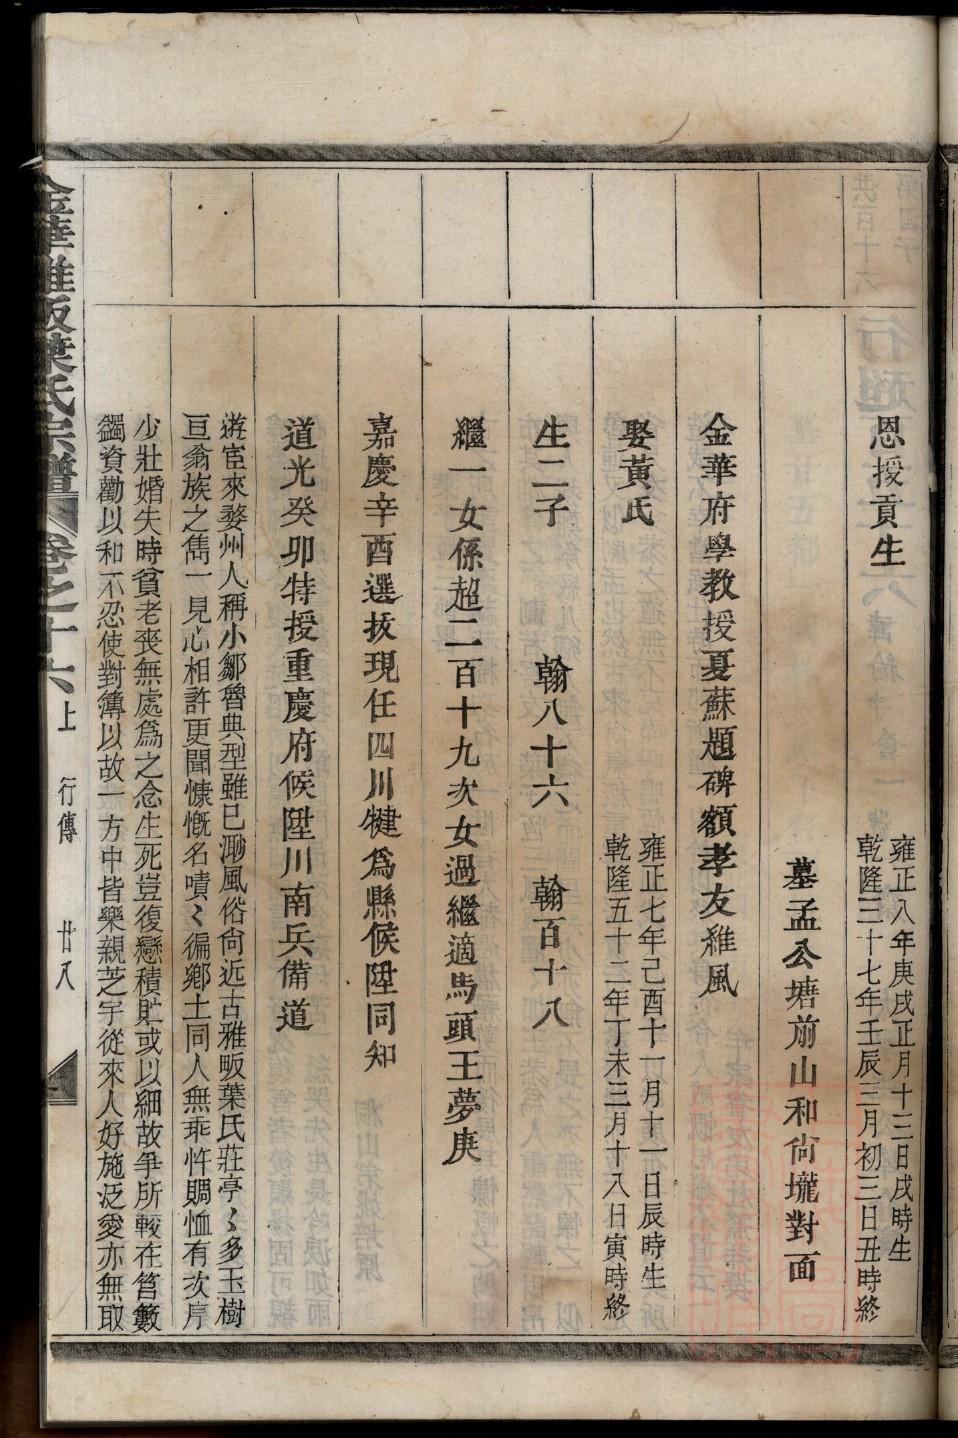 恩授貢生
雍正八年庚戌正月十三日戌時生
乾隆三十七年壬辰三月初三日丑時終
墓孟公塘前山和尚壠對面
金華府學教授夏蘇題碑額孝友維風
娶黃氏
雍正七年己酉十一月十一日辰時生
乾隆五十二年丁未三月十八日寅時終
生二子 翰八十六 翰百十八
繼一女係超二百十九次女過繼適馬頭王夢庚
嘉慶辛酉選拔現任四川犍為縣候陞同知
道光癸卯特授重慶府候陞川南兵備道
遊宦來婺州人稱小鄒魯典型雖已渺風俗尚近古雅畈葉氏莊亭〻多玉樹
亘翁族之雋一見心相許更聞慷慨名嘖〻徧鄉土同人無乖忤賙恤有次序
少壯婚失時貧老喪無處為之念生死豈復戀積貯或以細故爭所較在筥籔
蠲資勸以和不忍使對簿以故一方中皆樂親芝宇從來人好施泛愛亦無取
金華雅畈葉氏宗譜 卷之十六上 行傳 廿八